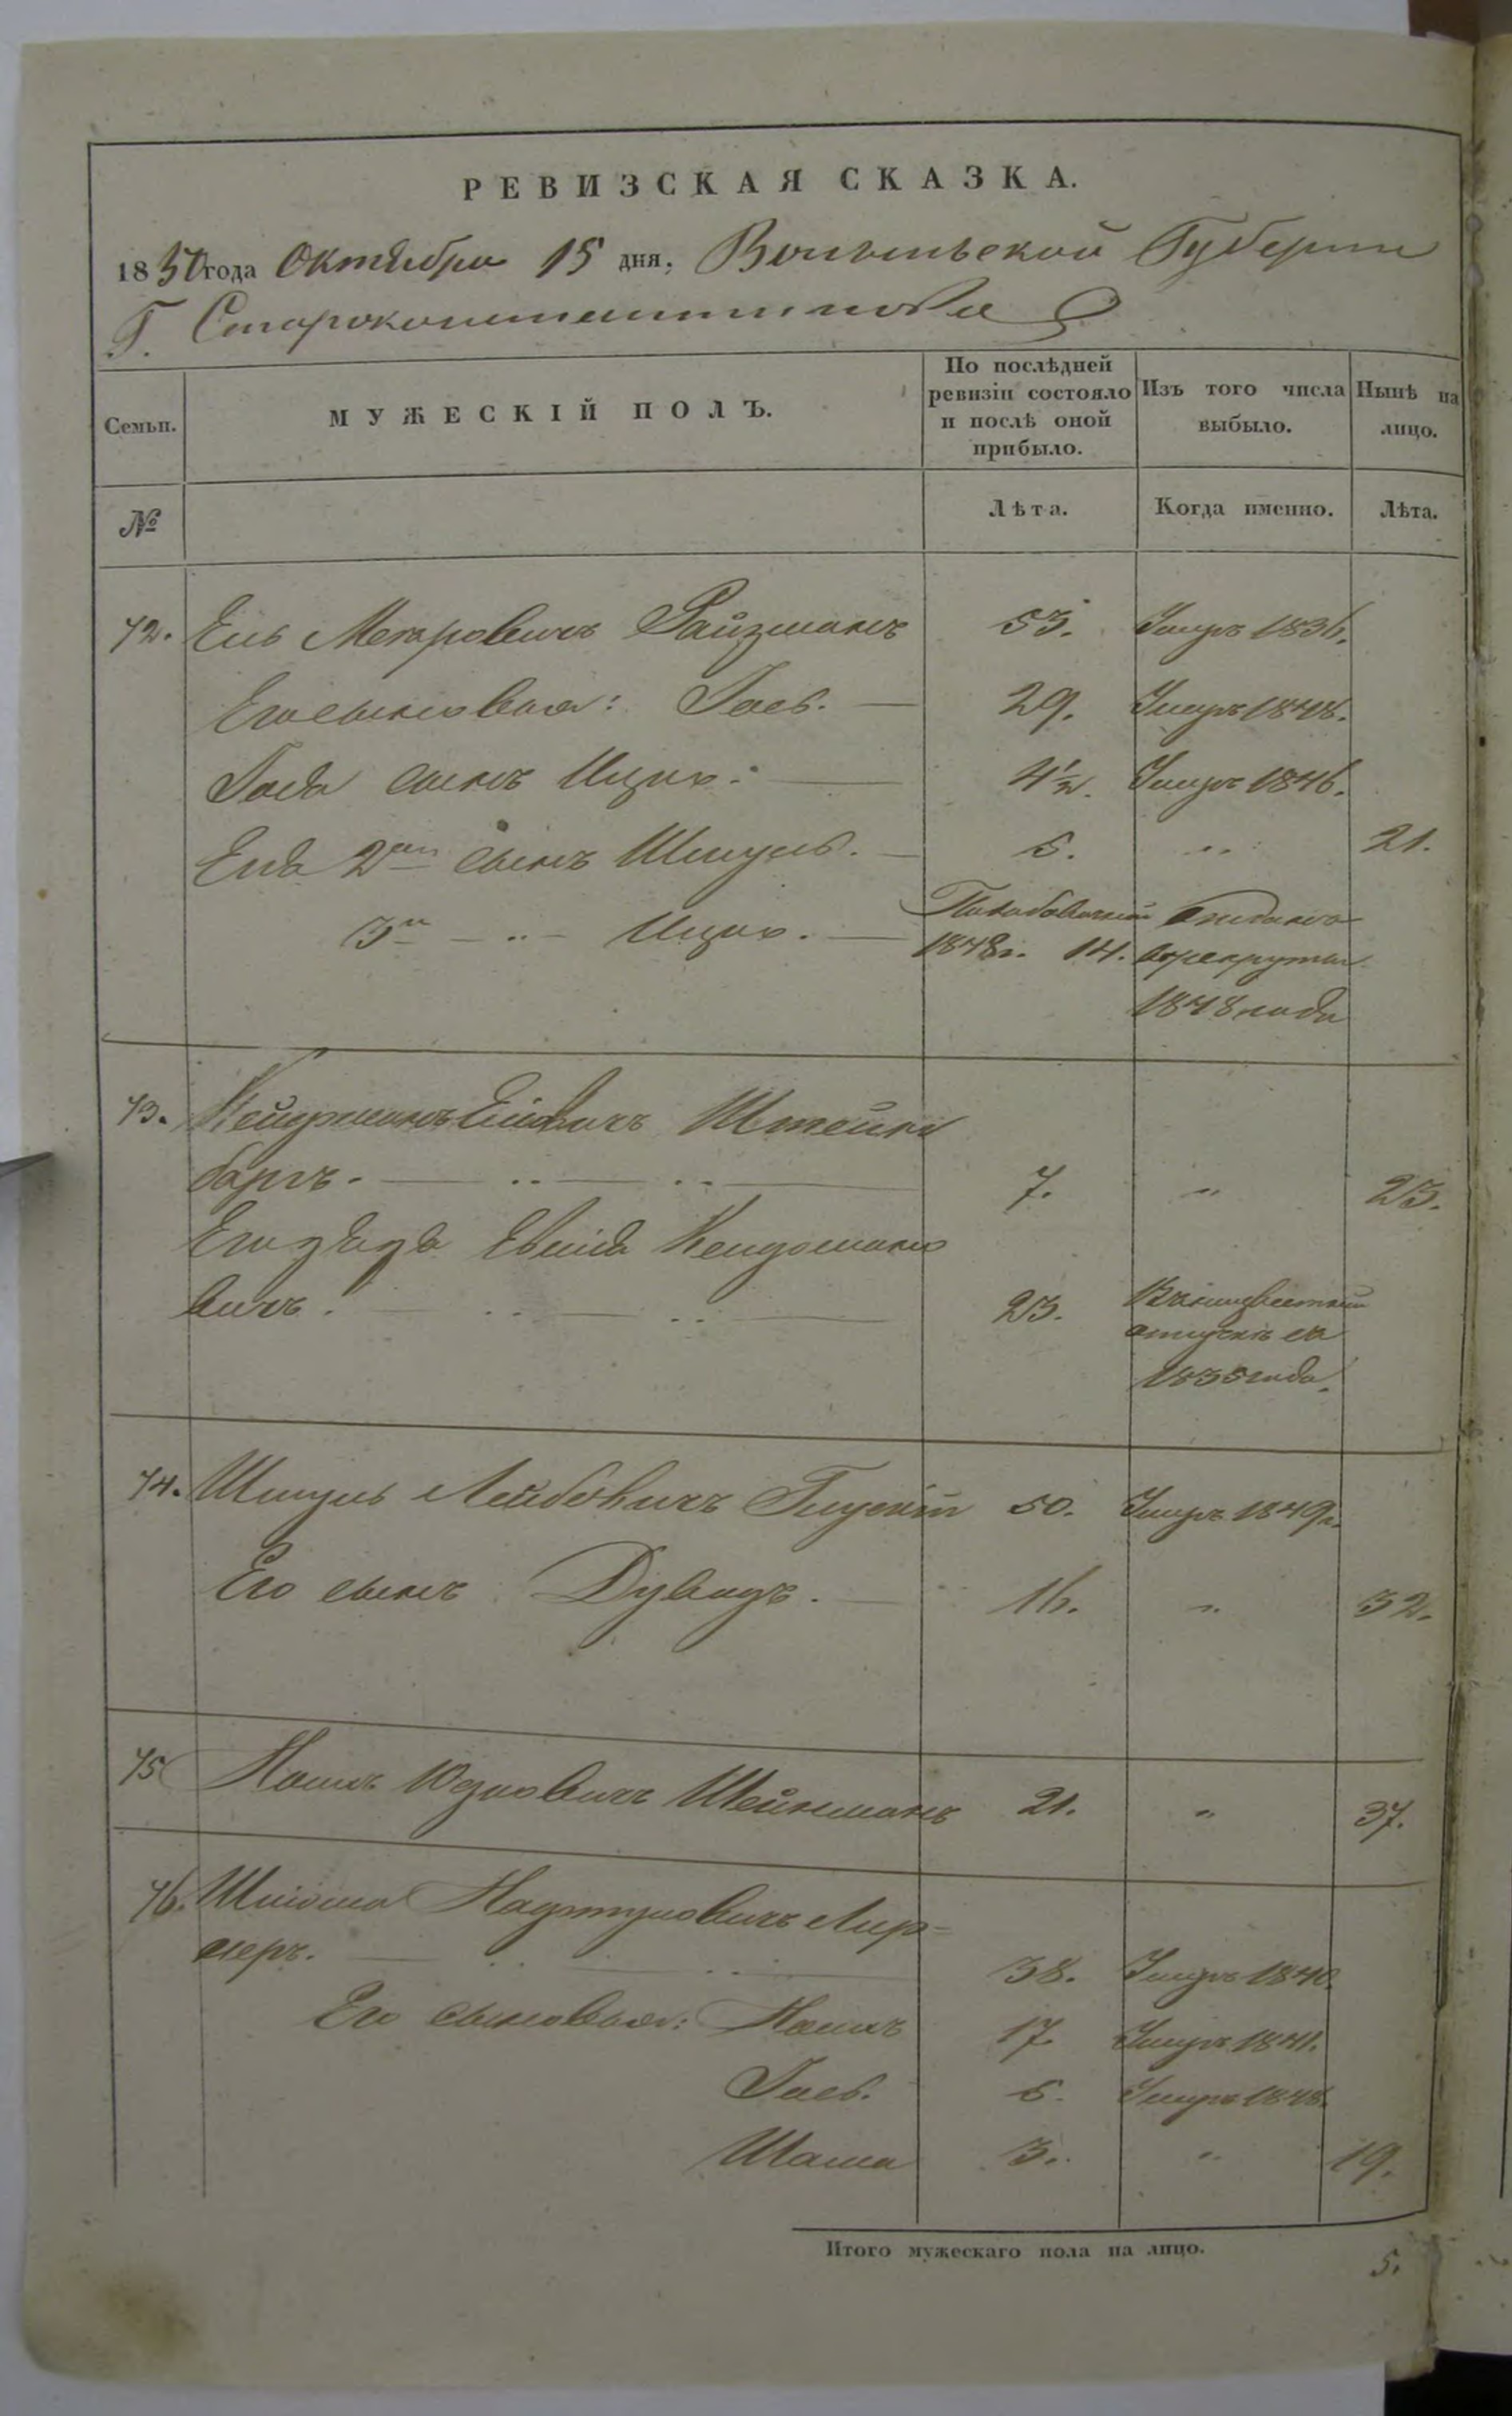 РЕВИЗСКАЯ СКАЗКА.
1850 года Октября 15 дня, Волынской Губернии
Г. Староконстантинова
Семьи. МУЖЕСКІЙ ПОЛЪ. По послѣдней ревизіи состояло и послѣ оной прибыло. Изъ того числа выбыло. Нынѣ на лицо.
№ Лѣта. Когда именно. Лѣта.
72. Ель Меаровичъ Райзманъ 53. Умеръ 1836.
Его сыновья: Іось. 29. Умеръ 1848.
Іося сынъ Ицко. 4½. Умеръ 1846.
Еля 2й сынъ Шмуль. 5. " 21.
3й " Ицко. 1848г. 14. Отданъ
в рекруты
1848 года
73. Штейн
баргъ. 7. " 23.
Его дядя
вичъ. 23. Въ неизвестной
отлучке съ
1835 года.
74. Шмуль Лейбовичъ 50. Умеръ 1849г.
Его сынъ Дувидъ. 16. " 32.
75 Хаимъ Юзковичъ Шейнманъ 21. " 37.
76. Шлiома Лир=
неръ. 38. Умеръ 1840.
Его сыновья: Хаимъ 17. Умеръ 1841.
Іось. 6. Умеръ 1848.
Шама 3. " 19.
Итого мужескаго пола на лицо. 5.